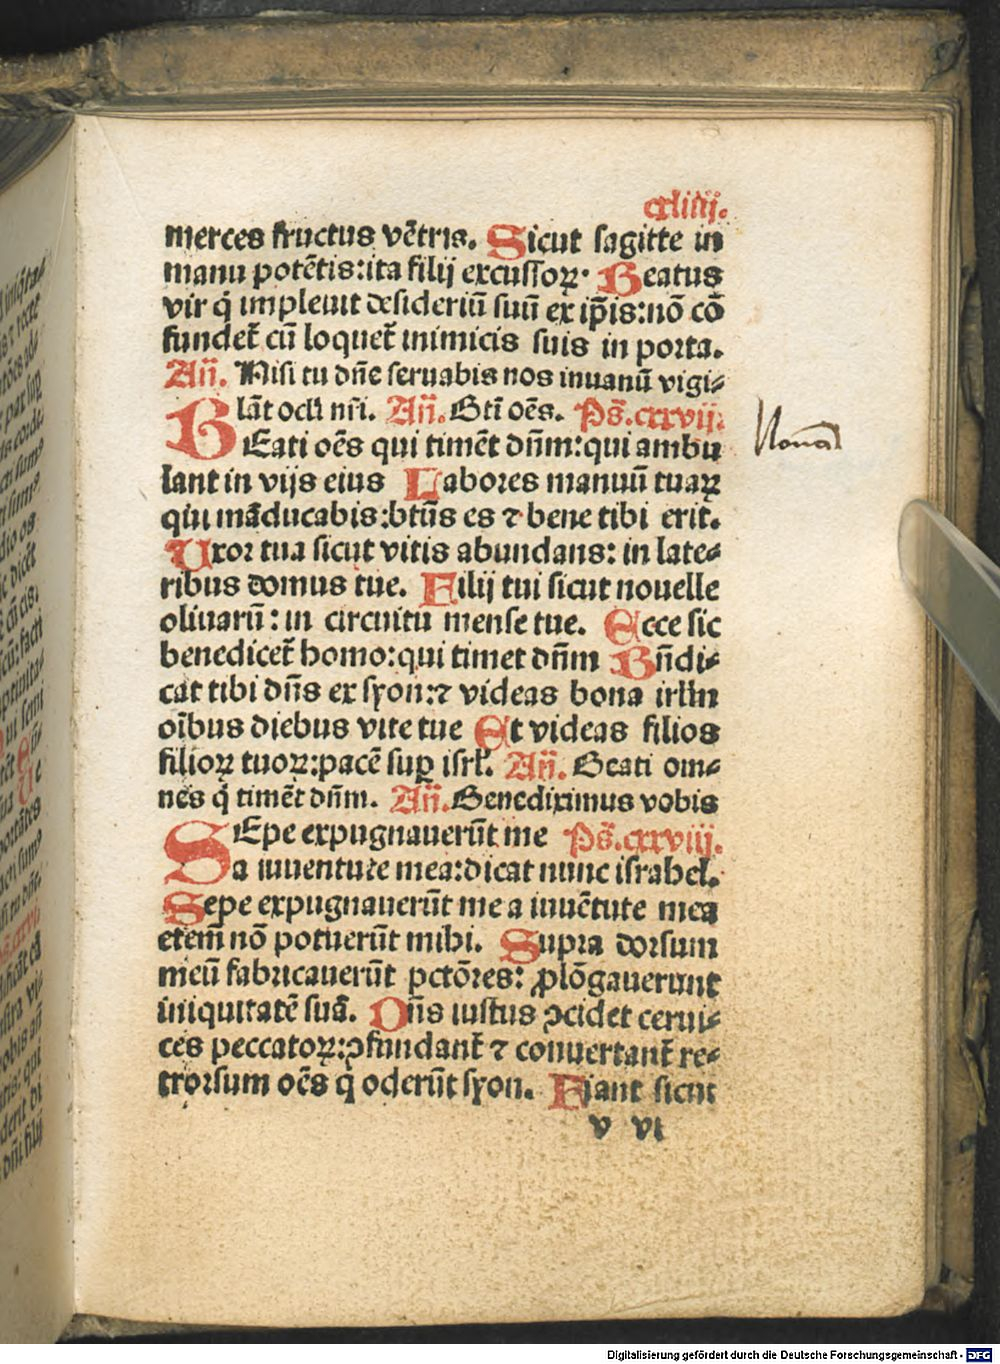 cxliiij.
merces fructus vētris. Sicut sagitte in
manu potētis:ita filij excussoꝝ· Beatus
vir q̇ impleuit desideriū suū ex ip̄is:nō cō
fundet̄ cū loquet̄ inimicis suis in porta.
Añ. Nisi tu dn̄e seruabis nos inuanū vigi⸗
lāt ocl̄i nr̄i. Añ. Btī oēs. Ps̄.cxxvij.
BEati oēs qui timēt dn̄m:qui ambu
lant in vijs eius Labores manuū tuaꝝ
qui māducabis:btūs es ⁊ bene tibi erit.
Uxor tua sicut vitis abundans: in late⸗
ribus domus tue. Filij tui sicut nouelle
oliuarū: in circuitu mense tue. Ecce sic
benedicet̄ homo:qui timet dn̄m Bn̄di⸗
cat tibi dn̄s ex syon:⁊ videas bona irlm̄
oībus diebus vite tue Et videas filios
filioꝝ tuoꝝ:pacē suꝑ isrl̄. Añ. Beati om⸗
nes q̇ timēt dn̄m. Añ. Benediximus vobis
SEpe expugnauerūt me Ps̄.cxxviij.
a iuuentute mea:dicat nunc israhel.
Sepe expugnauerūt me a iuuētute mea
etem̄ nō potuerūt mihi. Supra dorsum
meū fabricauerūt pctōres: ꝓlōgauerunt
iniquitatē suā. Dn̄s iustus ꝯcidet cerui⸗
ces peccatoꝝ:ꝯfundant̄ ⁊ conuertant̄ re⸗
trorsum oēs q̇ oderūt syon. Fiant sicut
v vi
Nona
Digitalisierung gefördert durch die Deutsche Forschungsgemeinschaft - DFG